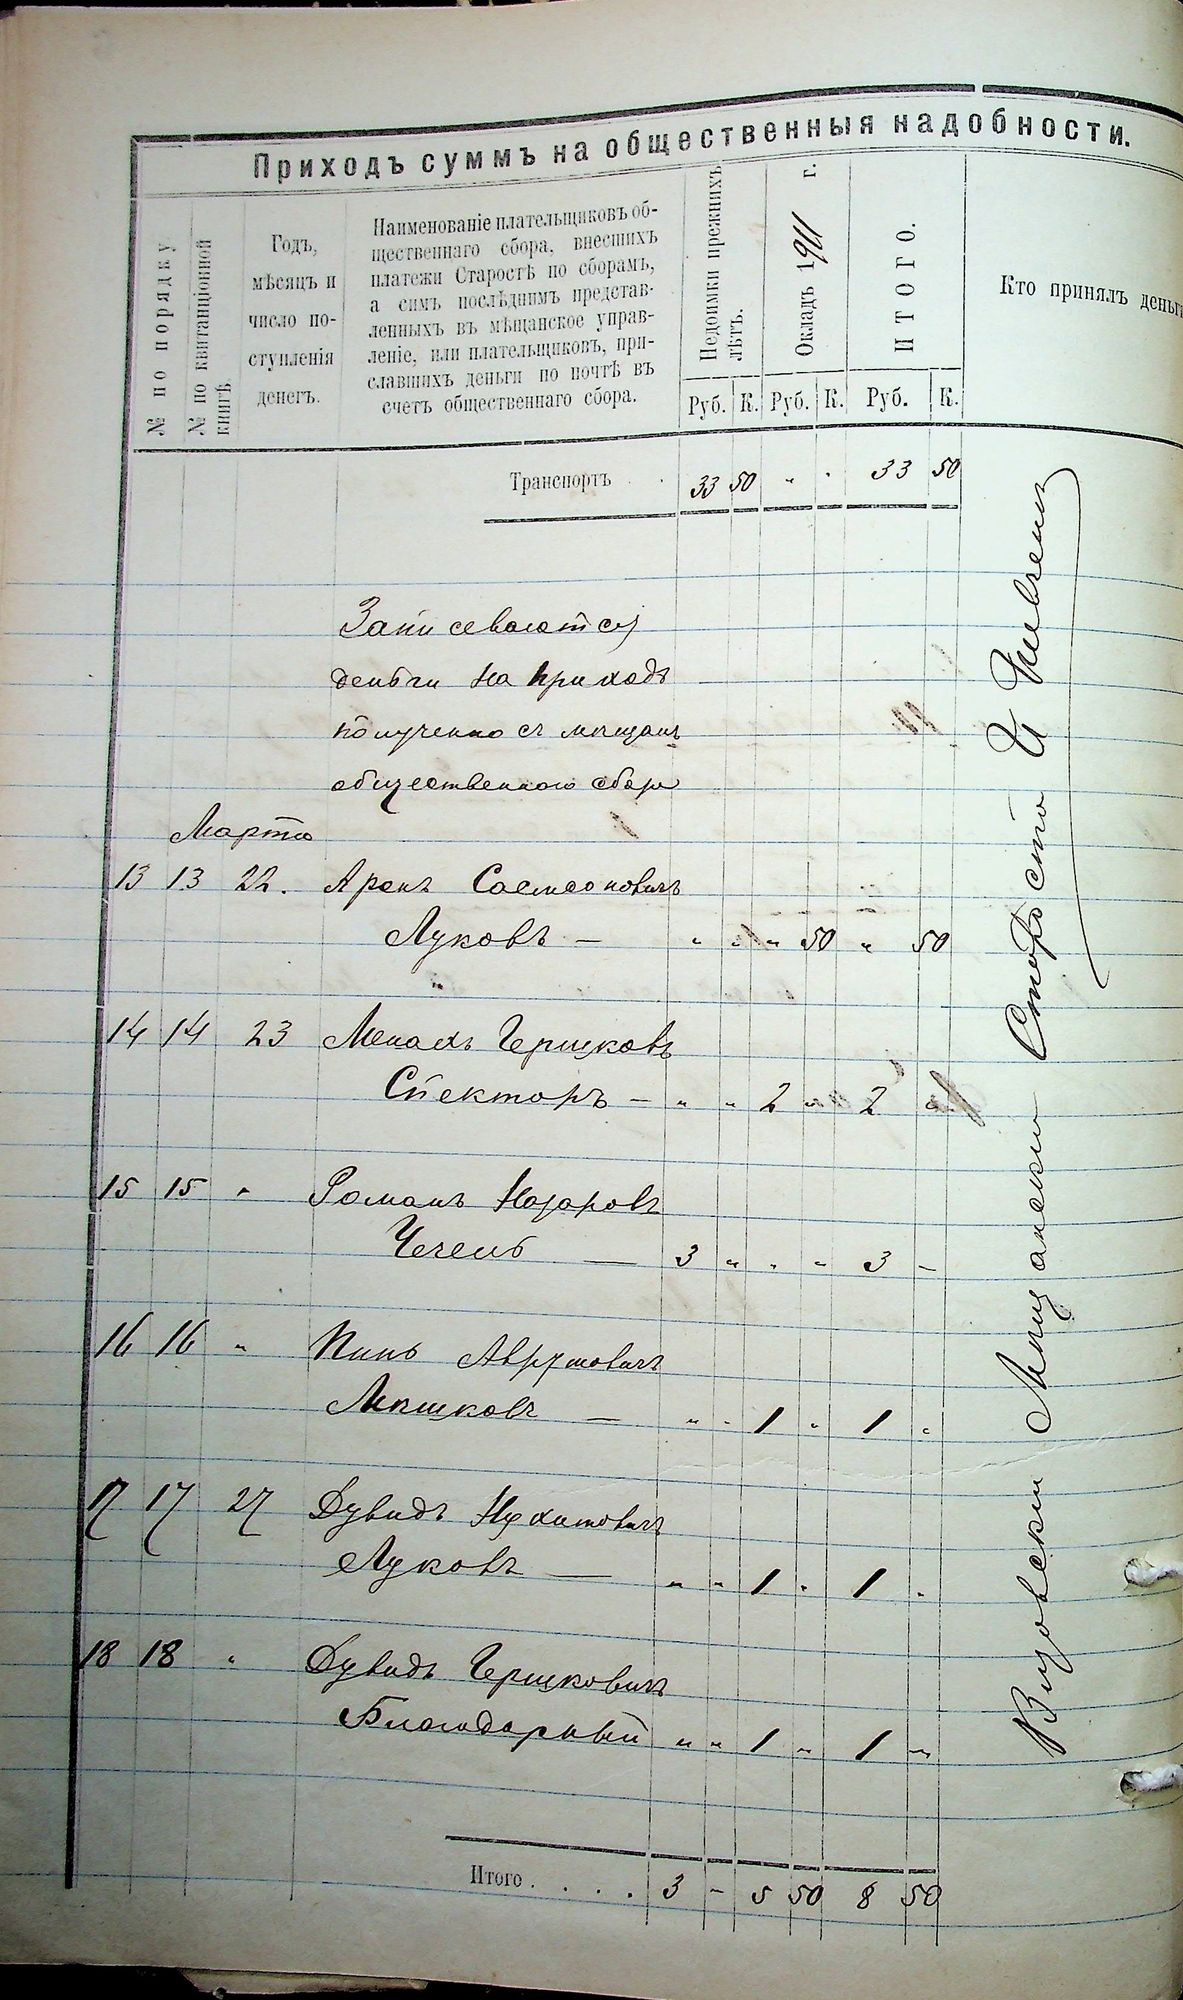 Приходъ суммъ на общественныя надобности.
№ по порядку
№ по квитанціонной книгѣ.
Годъ,
мѣсяцъ и
число по-
ступленія
денегъ.
Наименованіе плательщиковъ об-
щественнаго сбора, внесшихъ
платежи Старостѣ по сборамъ,
а симъ послѣднимъ представ-
ленныхъ въ мѣщанское управ-
леніе, или плательщиковъ, при-
славшихъ деньги по почтѣ въ
счетъ общественнаго сбора.
Недоимки прежнихъ
лѣтъ.
Окладъ 1911 г.
ИТОГО.
Кто принялъ деньги
Руб. К. Руб. К. Руб. К.
Транспортъ . . 33 50 " " 33 50
Записеваются
деньги на приходъ
получено съ мещанъ
общественного сбора
Марта
13 13 22. Аронъ
Луковъ — " " " 50 " 50
14 14 23 Менахъ Гершковъ
Спекторъ — " " 2 " 2 "
15 15 " Романъ Назаровъ
Чегель — 3 " " " 3 —
16 16 " Пинь
Мешковъ — " " 1 " 1 "
17 17 27 Дувидъ
Луковъ — " " 1 " 1 "
18 18 " Дувидъ Гершковичъ
Благодарный " " 1 " 1 "
Итого . . . . 3 - 5 50 8 50
Мещански Староста И